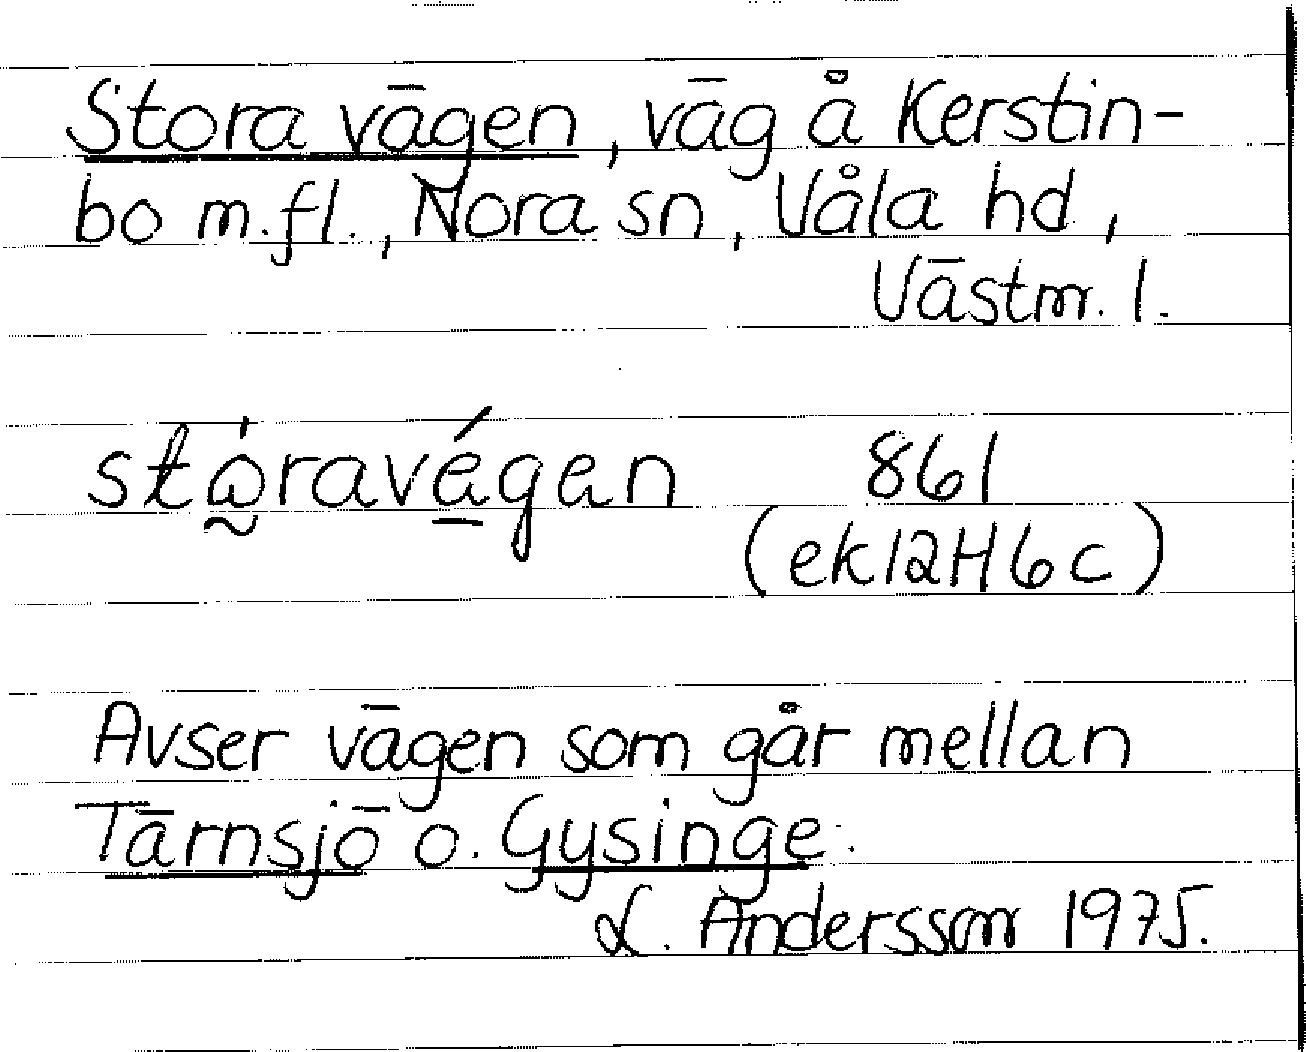 Stora vägen, väg å Kerstin-
bo m.fl., Nora sn, Våla hd,
Västm. l.
stώ̰ravé̱gen 861
(ek12H6c)
Avser vägen som går mellan
Tärnsjö o. Gysinge.
L. Andersson 1975.